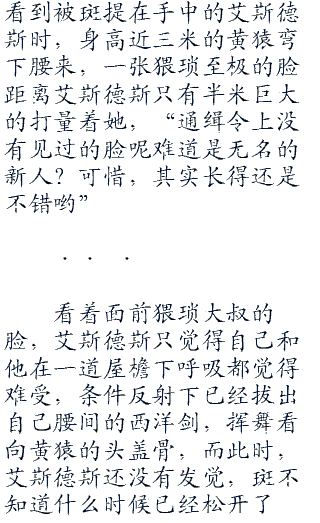 看到被斑提在手中的艾斯德
斯时，身高近三米的黄猿弯
下腰来，一张猥琐至极的脸
距离艾斯德斯只有半米巨大
的打量着她，“通缉令上没
有见过的脸呢难道是无名的
新人？可惜，其实长得还是
不错哟”
· · ·
看着面前猥琐大叔的
脸，艾斯德斯只觉得自己和
他在一道屋檐下呼吸都觉得
难受，条件反射下已经拔出
自己腰间的西洋剑，挥舞看
向黄猿的头盖骨，而此时，
艾斯德斯还没有发觉，斑不
知道什么时候已经松开了